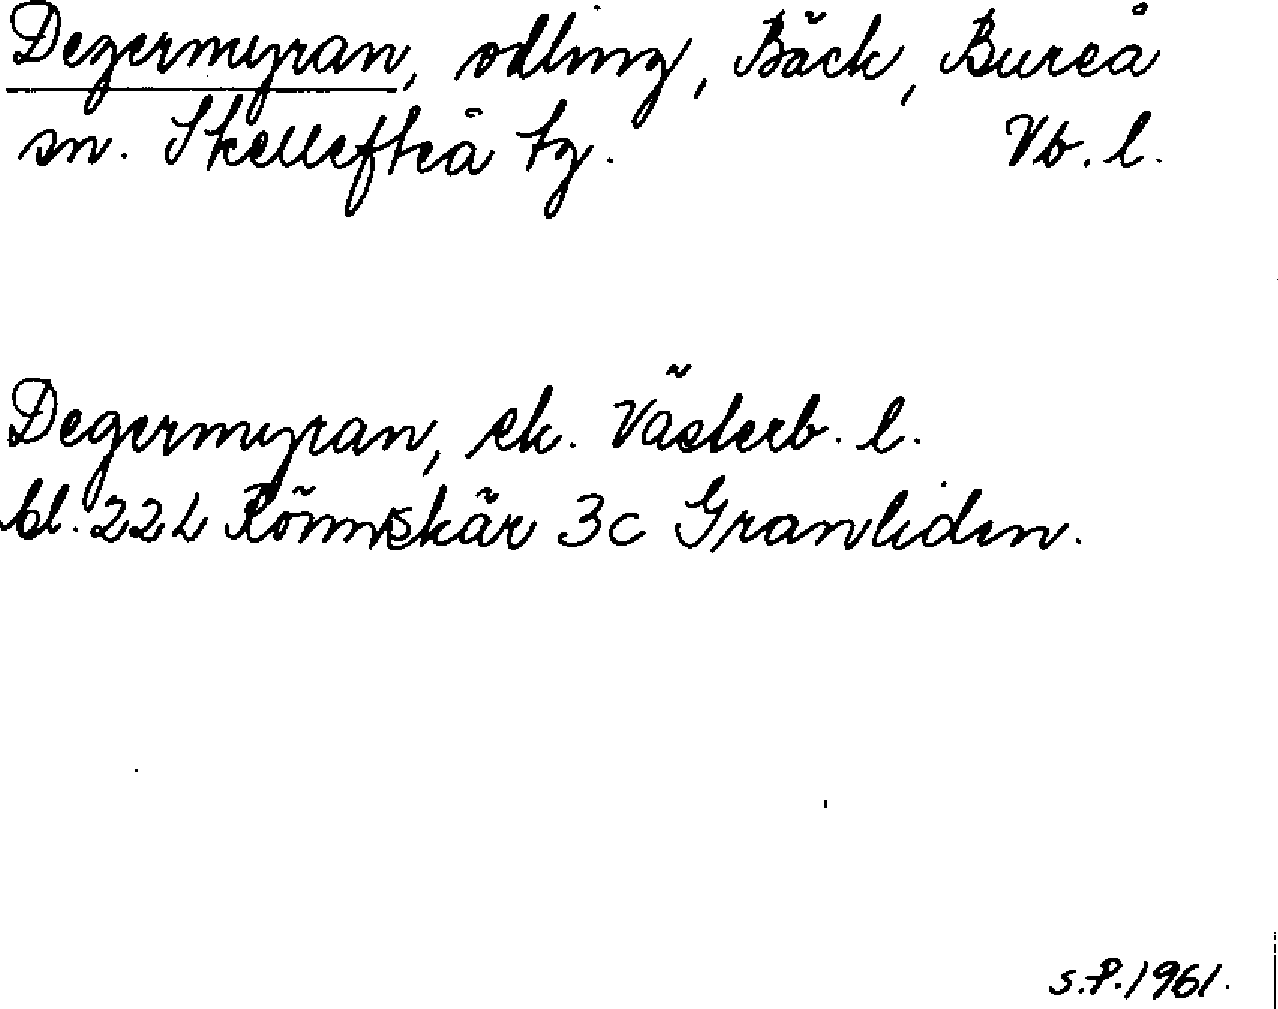 Degermyran, odling, Bäck, Bureå
sn. Skellefteå tg. Vb. l.
Degermyran, ek. Västerb. l.
bl. 22L Rönnskär 3c Granliden.
S.P. 1961.